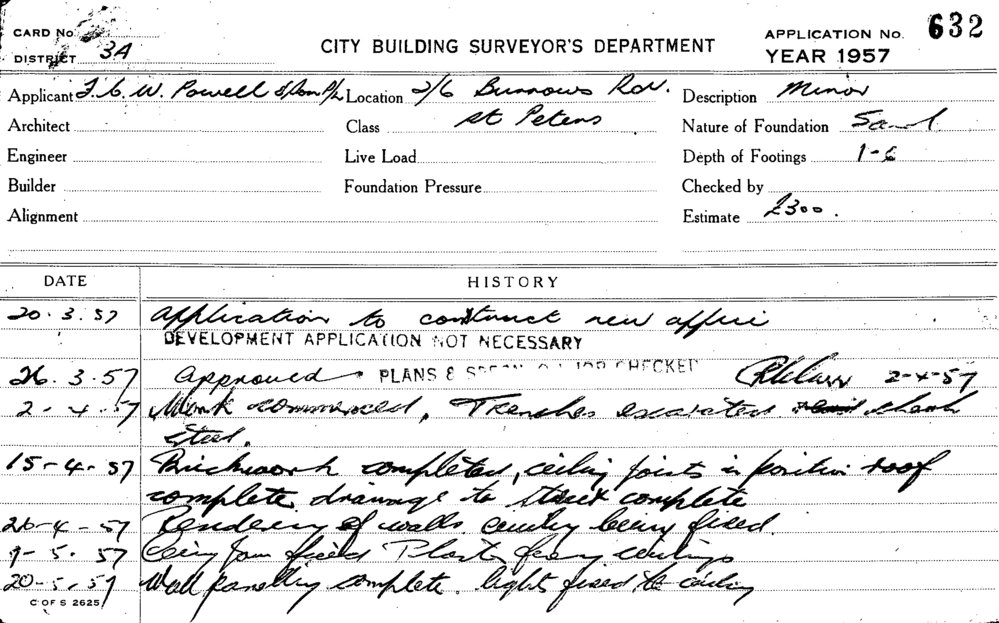 CARD No.
DISTRICT 3A
CITY BUILDING SURVEYOR'S DEPARTMENT
APPLICATION No. 632
YEAR 1957
Applicant F. C. W. Powell & Son P/L Location 2/6 Burrows Rd. Description Minor
Architect Class St Peters Nature of Foundation Sand
Engineer Live Load Depth of Footings 1-6
Builder Foundation Pressure Checked by
Alignment Estimate £300.
DATE HISTORY
20.3.57 Application to construct new office
DEVELOPMENT APPLICATION NOT NECESSARY
26.3.57 Approved PLANS & JOB CHECKED 2-4-57
2-4-57 Work commenced, Trenches excavated check
steel.
15-4-57 Brickwork completed, ceiling joists in position roof
complete drainage to street complete
26-4-57 Rendering of walls. being fixed.
57 fixed ceilings
20-5-57 Wall panelling complete. light fixed to ceiling
C OF S 2625